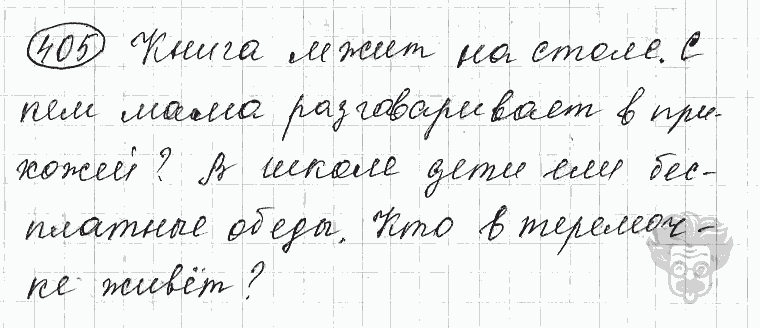 405 Книга лежит на столе. С
кем мама разговаривает в при-
хожей? В школе дети ели бес-
платные обеды. Кто в теремоч-
ке живёт?